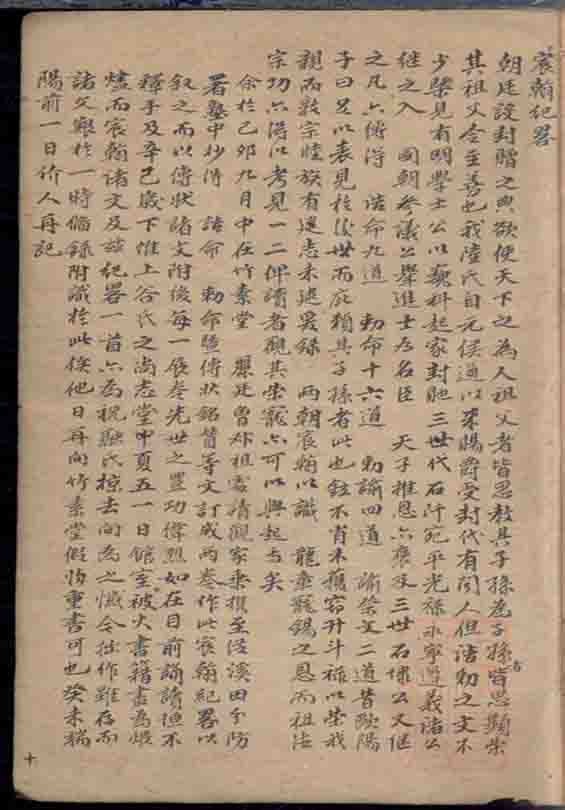 宸翰紀畧
朝廷設封贈之典欲使天下之為人祖父者皆思教其子孫為子孫者皆思顯榮
其祖父舍至善也我陸氏自元侯通以來賜爵受封代有聞人但誥勅之文不
少槩見有明學士公以巍科起家封貤三世代石阡宛平光祿永寧遵義諸公
繼之入 國朝參議公舉進士為名臣 天子推恩六褒及三世石壕公又繼
之凡六傳得 誥命九道 勅命十六道 勅諭四道 諭祭文二道昔歐陽
子曰足以表見於後世而庇賴其子孫者此也銓不肖未獲窃升斗祿以榮我
親而敦宗睦族有遺志未逮爰錄 兩朝宸翰以識 龍章寵錫之恩而祖德
宗功六得以考見一二俾讀者覩其榮寵六可以興起焉矣
余於乙卯九月中在竹素堂 麗廷曾外祖處請觀家乘撰至後溪田子防
署塾中抄得 誥命 勅命暨傳狀銘贊等文訂成兩卷作此宸翰紀畧以
叙之而以傳狀諸文附後每一展卷先世之豐功偉烈如在目前誦讀恒不
釋手及辛巳歲下帷上谷氏之尚志堂中夏五一日館室被火書籍盡為煨
燼而宸翰諸文及茲紀畧一首六為祝融氏掠去向為之懺今拙作雖存而
諸父輿於一時偹錄附識於此俟他日再向竹素堂假物重書可也癸未端
陽前一日价人再記
十